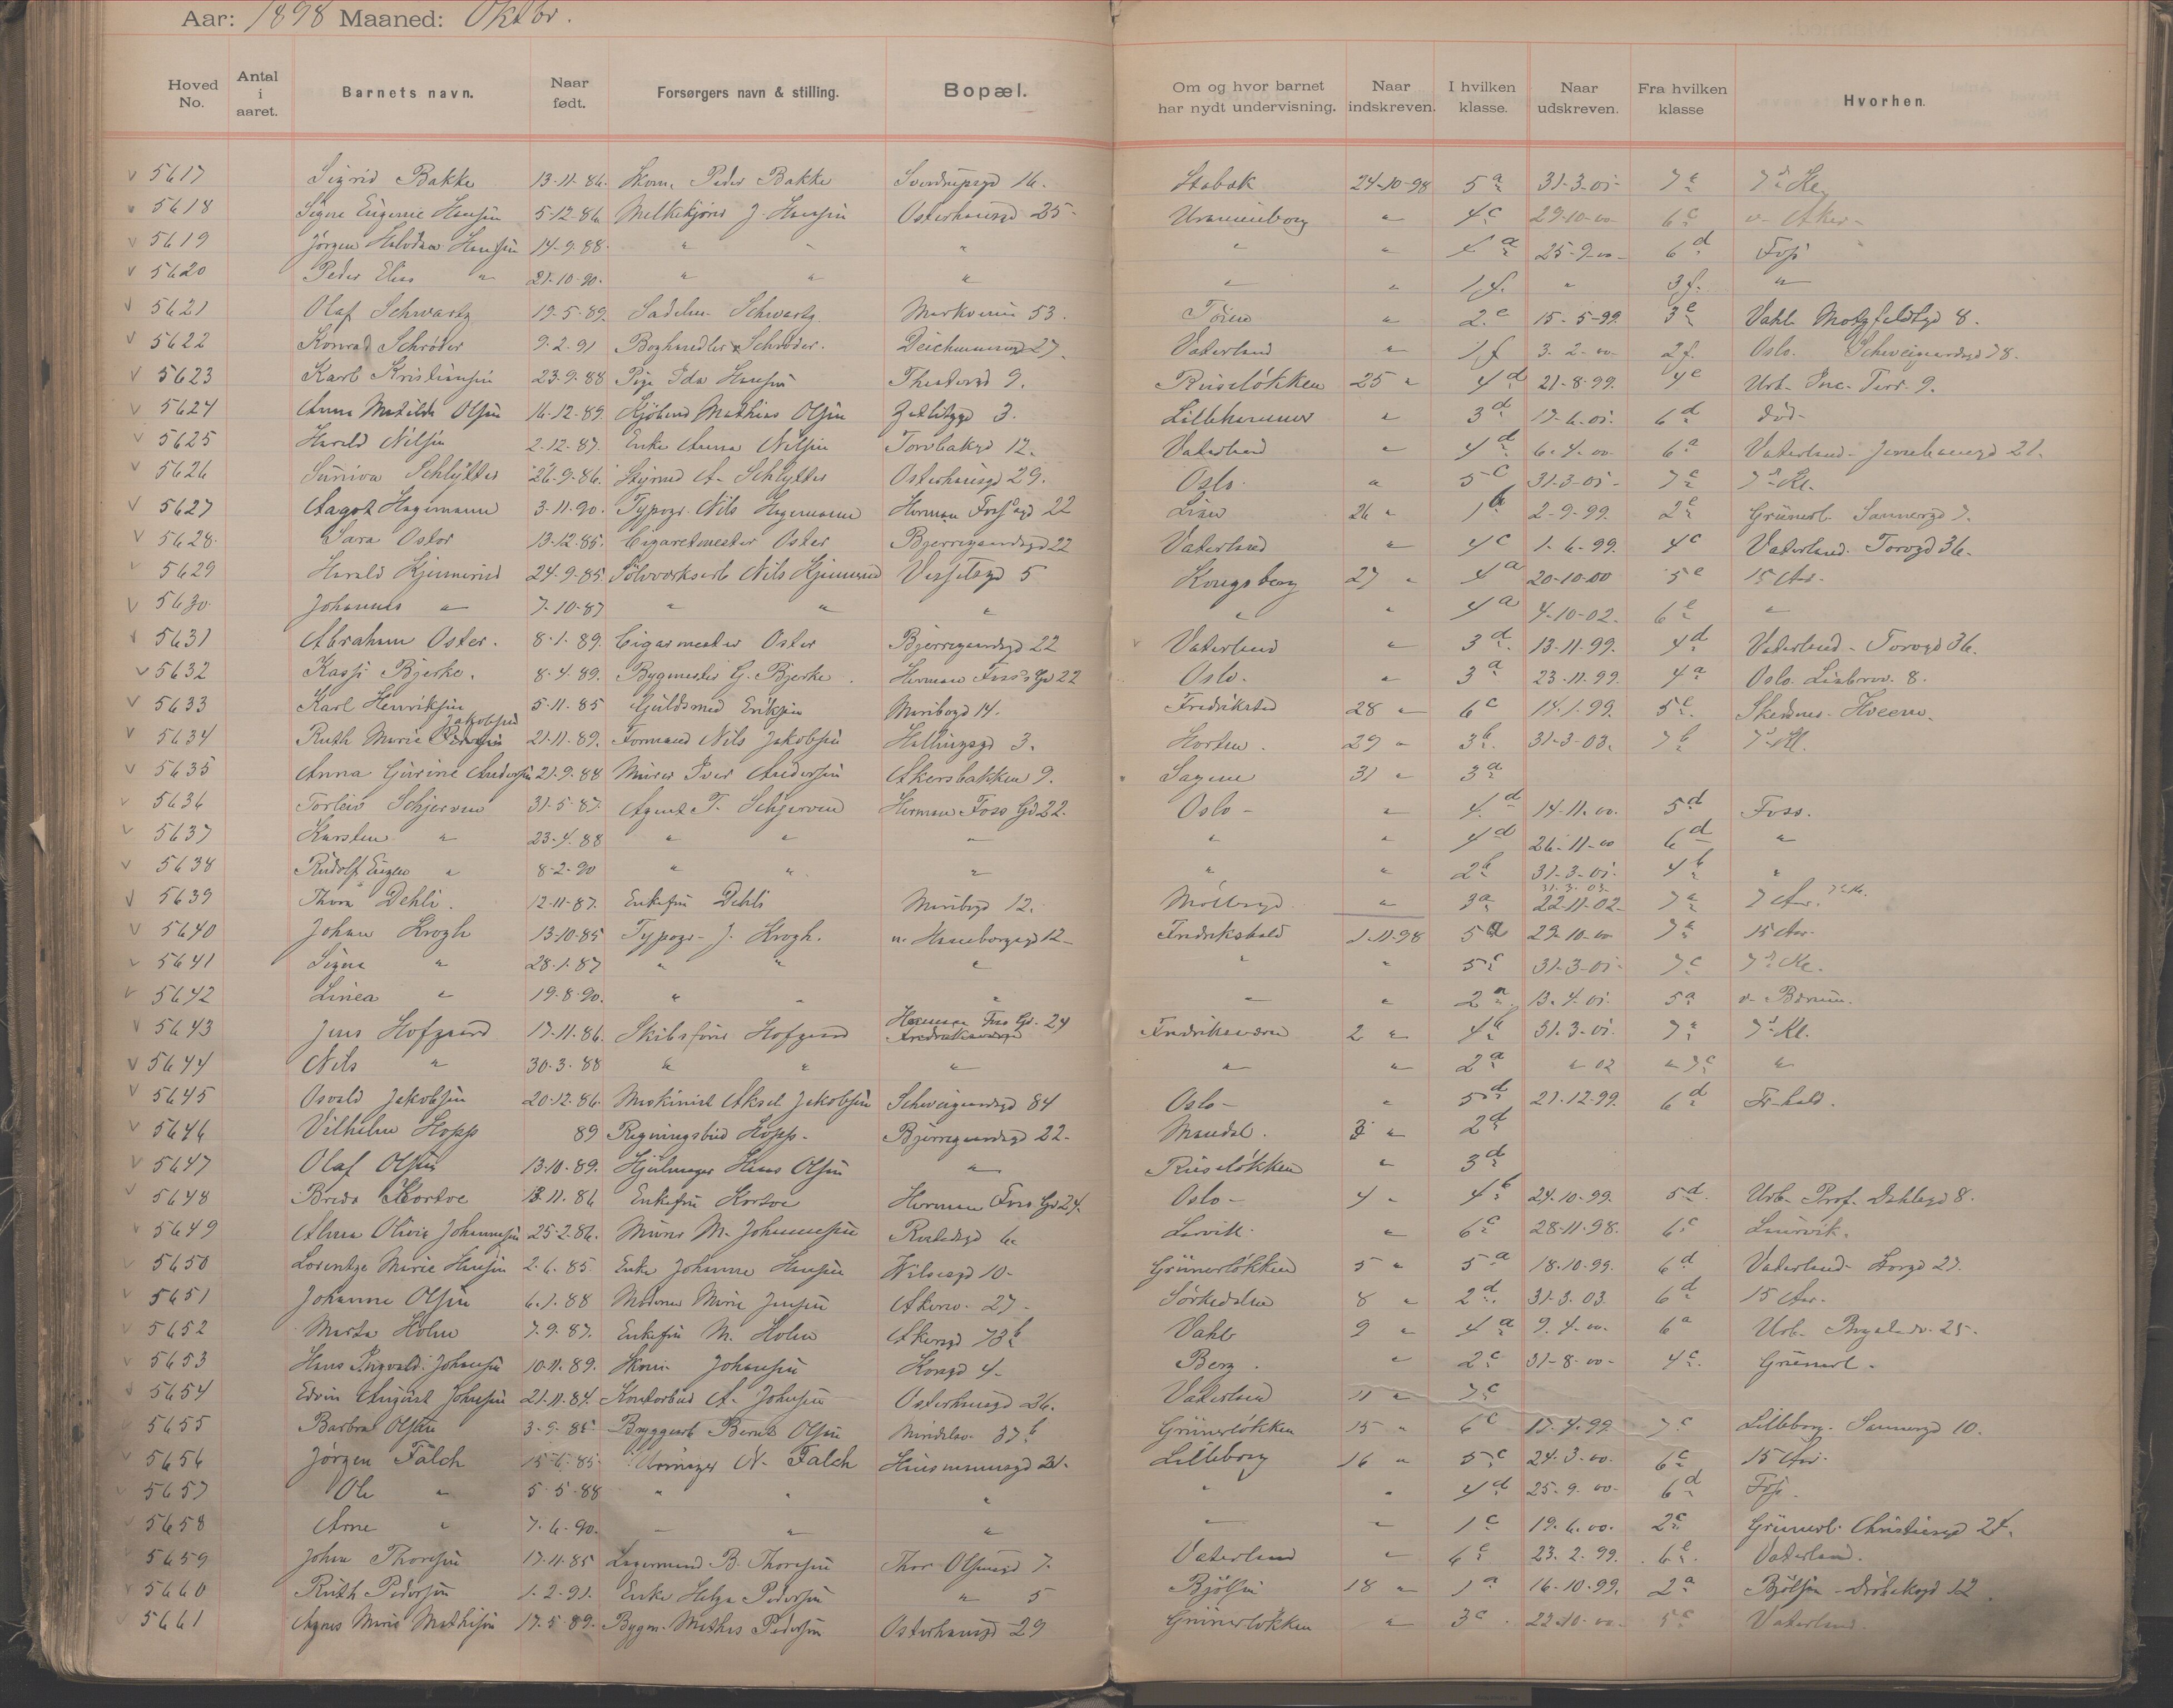 Aar: 1898 Maaned: Oktbr.
Hoved No. Antal i aaret. Barnets navn. Naar født. Forsørgers navn & stilling. Bopæl. Om og hvor barnet har nydt undervisning. Naar indskreven. I hvilken klasse. Naar udskreven. Fra hvilken klasse Hvorhen.
5617 Sigrid Bakke 13-11-86. Peder Bakke Sverdrupsgd 16. Stabæk 24-10-98 5a 31-3-01- 7
5618 Signe Eugenie Hansen 5-12-86 J. Hansen Osterhausgd 25- Uranienborg " 4c 29-10-00- 6c Aker-
5619 Jørgen Halvdan Hansen 14-9-88 " " " " " 4a 25-9-00- 6d Foss
5620 Peder Elias " 21-10-90. " " " " " 1f. " 3f. "
5621 Olaf Schwartz 19-5-89. Sadelm. Schwartz Markveien 53. Tøien " 2e 15-5-99. 3e Vahl Motzfeldtgd 8.
5622 Konrad Schrøder 9-2-91 Boghandler Schrøder. Deichmansgd 27. Vaterland " 1f 3-2-00- 2f. Oslo. Schweigaardsgd 78.
5623 Karl Kristiansen 23-9-88 Pige Ida Hansen Theatergd 9. Ruseløkken 25 " 4d 21-8-99. 4e Urb. Inc. Terr. 9.
5624 Anna Matilde Olsen 16-12-89 Mathias Olsen 3. Lillehammer " 3d 17-6-01. 6d død-
5625 Harald Nilsen 2-12-87. Enke Anna Nilsen Torvbakgd 12. Vaterland " 4d 6-4-00- 6a Vaterland- 21.
5626 Sunniva Schlytter 26-9-86. Styrmd A. Schlytter Osterhausgd 29. Oslo- " 5c 31-3-01- 7 7de Kl.
5627 Aagot Hagemann 3-11-90. Typogr. Nils Hagemann Herman Foss'gd 22 Lian 26 " 1b 2-9-99. 2e Grünerl. Sannergd 7.
5628. Sara Oster 13-12-85. Cigaretmester Oster Bjerregaardsgd 22 Vaterland " 4c 1-6-99. 4c Vaterland. Torvgd 36-
5629 Harald Kjennerud 24-9-85 Sölvverksarb Nils Kjennerud Vesselsgd 5 Kongsberg 27 " 4a 20-10-00 5e 15 Aar-
5630. Johannes " 7-10-87 " " " " " 4a 4-10-02. 6e "
5631 Abraham Oster. 8-1-89. Cigarmester Oster Bjerregaardsgd 22 Vaterland " 3d 13-11-99. 4d Vaterland- Torvgd 36.
5632 Bjerke. 8-4-89. Bygmester G. Bjerke. Herman Foss's Gd 22 Oslo- " 3a 23-11-99. 4a Oslo. 8.
5633 Karl Henriksen 5-11-85 Guldsmed Eriksen Maribogd 14. Fredrikstad 28 " 6c 14-1-99. 5c
5634 Ruth Marie Pedersen Jakobsen 21-11-89. Formand Nils Jakobsen Hallingsgd 3. Horten. 29 " 3b. 31-3-03. 7b 7de Kl.
5635 Anna Gurine Andersen 21-9-88 Murer Iver Andersen Akersbakken 9. Sagene 31 " 3a
5636 Torleiv Schjerven 31-5-87. Agent T. Schjerven Herman Foss Gd 22. Oslo- " 4d 14-11-00. 5d Foss.
5637 Karsten " 23-4-88 " " " " " 4d 26-11-00 6d "
5638 Rudolf Eugen " 8-2-90 " " " " " 2b 31-3-01- 4b "
5639 Thora Dehli. 12-11-87. Enkefru Dehli Maribogd 12. Møllergd " 3a 31-3-03- 22-11-02- 7a 7 Aar. 7de Kl.
5640 Johan Krogh 13-10-85 Typogr- J. Krogh. 12- Fredrikshald 1-11-98 5a 29-10-00 7a 15 Aar-
5641 Signe " 28-1-87 " " " " " 5c 31-3-01- 7c 7de Kl.
5642 Linea " 19-8-90. " " " " " 2a 13-4-01. 5a Bærum.
5643 Jens Hofgaard 17-11-86. Skibsfører Hofgaard Herman Foss Gd. 24 Fredriksværn Fredriksværn 2 " 4b 31-3-01. 7a 7de Kl.
5644 Nils " 30-3-88 " " " " " 2a " 02 " 7c "
5645 Osvald Jakobsen 20-12-86. Maskinist Aksel Jakobsen Schweigaardsgd 84 Oslo- " 5d 21-12-99. 6d Fr-hald.
5646 Vilhelm Hopp 89 Regningsbud Hopp- Bjerregaardsgd 22- Mandal. 3 " 2d
5647 Olaf Olsen 13-10-89. Hjulmager Hans Olsen " Ruseløkken " 3d
5648 Kortve 13-11-86 Enkefru Kortve Herman Foss Gd 24. Oslo- 4 " 4b 24-10-99. 5d. Urb- Prof. Dahlsgd 8.
5649 Alma Olivia Johannesen 25-2-86. Murer M. Johannesen 6 Larvik. " 6c 28-11-98. 6c Laurvik.
5650 Lorentze Marie Hansen 2-6-85. Enke Johanne Hansen Wilsesgd 10- Grünerløkken 5 " 5a 18-10-99. 6d Vaterland- Korsgd 27.
5651 Johanne Olsen 6-1-88 Marie Jensen Akersv- 27- Sørkedalen 8 " 2d. 31-3-03. 6d 15 Aar-
5652 Marta Holm 7-9-87. Enkefru M. Holm Akersgd 73b Vahl 9 " 4a 9-4-00. 6a Urb- 25-
5653 Hans Ingvald Johansen 10-11-89. Johansen Korsgd 4- Berg. " 2c 31-8-00- 4c. Grünerl-
5654 Edvin August Johnsen 21-11-84. Kontorbud A. Johnsen Osterhausgd 26. Vaterland 11 " 7c
5655 Barbra Olsen 3-9-85 Bryggearb Bernt Olsen 37b Grünerløkken 15 " 6c 17-4-99 7c Lilleborg- Sannergd 10.
5656 Jørgen Falch 15-6-85- N. Falch Husmannsgd 21. Lilleborg 16 " 5c 24-3-00. 6c 15 Aar-
5657 Ole " 5-5-88 " " " " " 4d 25-9-00- 6d Foss.
5658 Arne " 7-6-90. " " " " " 1c 19-6-00. 2c Grünerl. Christiesgd 24.
5659 Johan Thoresen 17-11-85 Lagermand B. Thoresen Thor Olsensgd 7. Vaterland " 6e 23-2-99. 6e. Vaterland.
5660 Ruth Pedersen 1-2-91. Enke Helga Pedersen " 5 Bjølsen 18 " 1a 16-10-99. 2a Bjølsen - 12.
5661 Agnes Marie Mathisen 17-5-89. Bygm. Mathis Pedersen Osterhausgd 29 Grünerløkken " 3c. 22-10-00- 5c Vaterland.